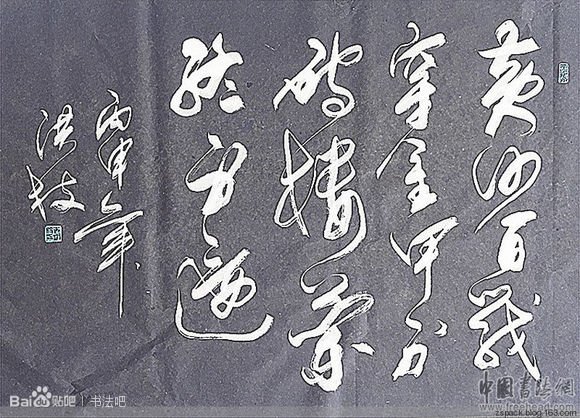 黄沙百戰
穿金甲不
破樓蘭
終不還
丙申年
洪枝
Bai贴吧 | 书法吧
中国书法网
zspack.blog.163.com